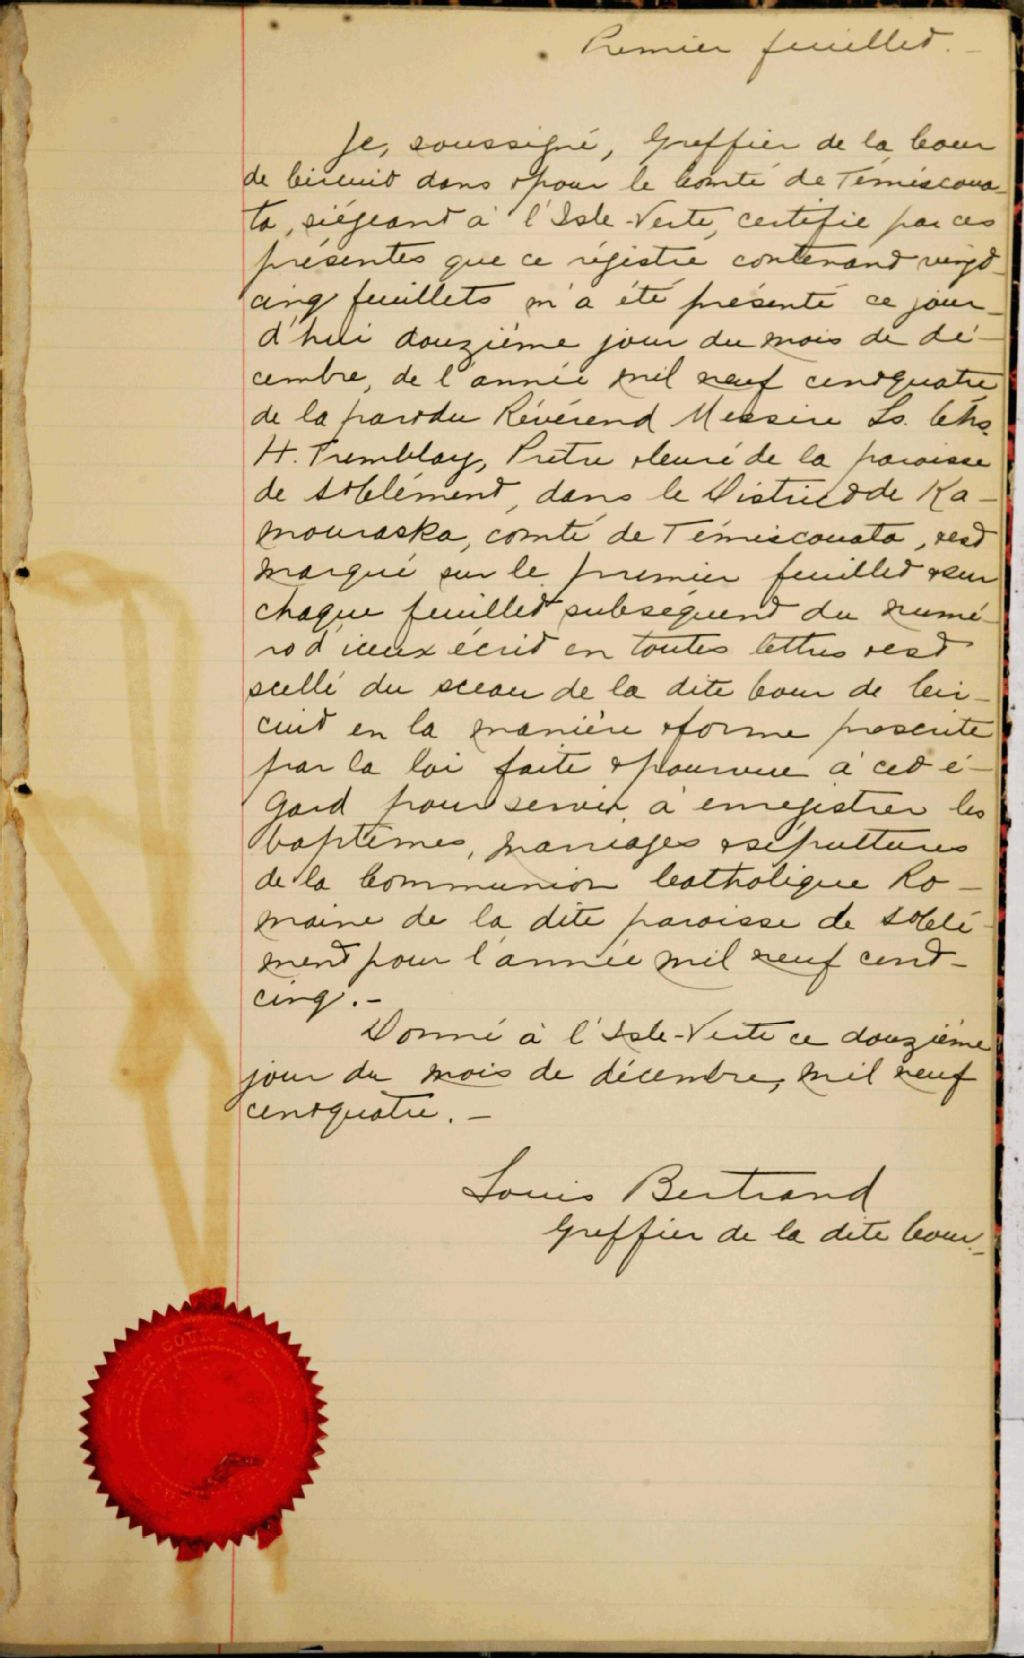 Premier feuillet.-
Je, soussigné, Greffier de la Cour
de Circuit dans & pour le Comté de Témiscoua-
ta, siégeant à l'Isle-Verte, certifie par ces
présentes que ce régistre contenant vingt-
cinq feuillets m'a été présenté ce jour-
d'hui douzième jour du mois de dé-
cembre, de l'année mil neuf cent quatre
de la part du Révérend Messire Ls. Chs.
H. Tremblay, Prêtre & Curé de la paroisse
de St Clément, dans le District de Ka-
mouraska, comté de Témiscouata, & est
marqué sur le premier feuillet & sur
chaque feuillet subséquent du numé-
ro d'iceux écrit en toutes lettres & est
scellé du sceau de la dite Cour de Cir-
cuit en la manière & forme prescrite
par la loi faite & pourvue à cet é-
gard pour servir à enregistrer les
baptêmes, mariages & sépultures
de la Communion Catholique Ro-
maine de la dite paroisse de St Clé-
ment pour l'année mil neuf cent-
cinq.-
Donné à l'Isle-Verte ce douzième
jour du mois de décembre, mil neuf
cent quatre.-
Louis Bertrand
Greffier de la dite Cour.-
COURT